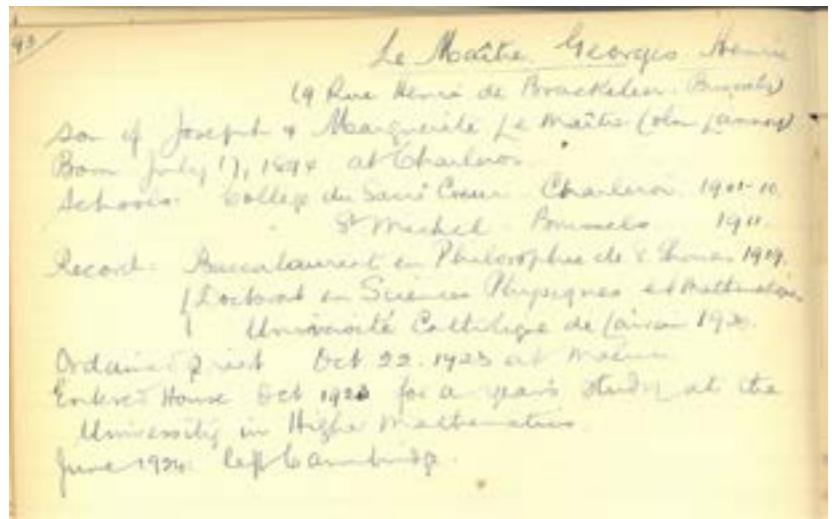 93
Le Maître Georges Henri
19 Rue Henri de Braekeleer Brussels
Son of Joseph & Marguerite Le Maître (olim Lannoy)
Born July 17, 1894 at Charleroi
Schools: College du Sacré Coeur Charleroi 1901-10.
St Michel Brussels 1911.
Record: Baccalaureat en Philosophie de S. Thomas 1919.
Doctorat en Sciences Physiques et Mathematiques
Université Catholique de Louvain 1920.
Ordained priest Oct. 22. 1923 at Malines
Entered House Oct 1923 for a year's study at the
University in Higher Mathematics.
June 1924. left Cambridge.